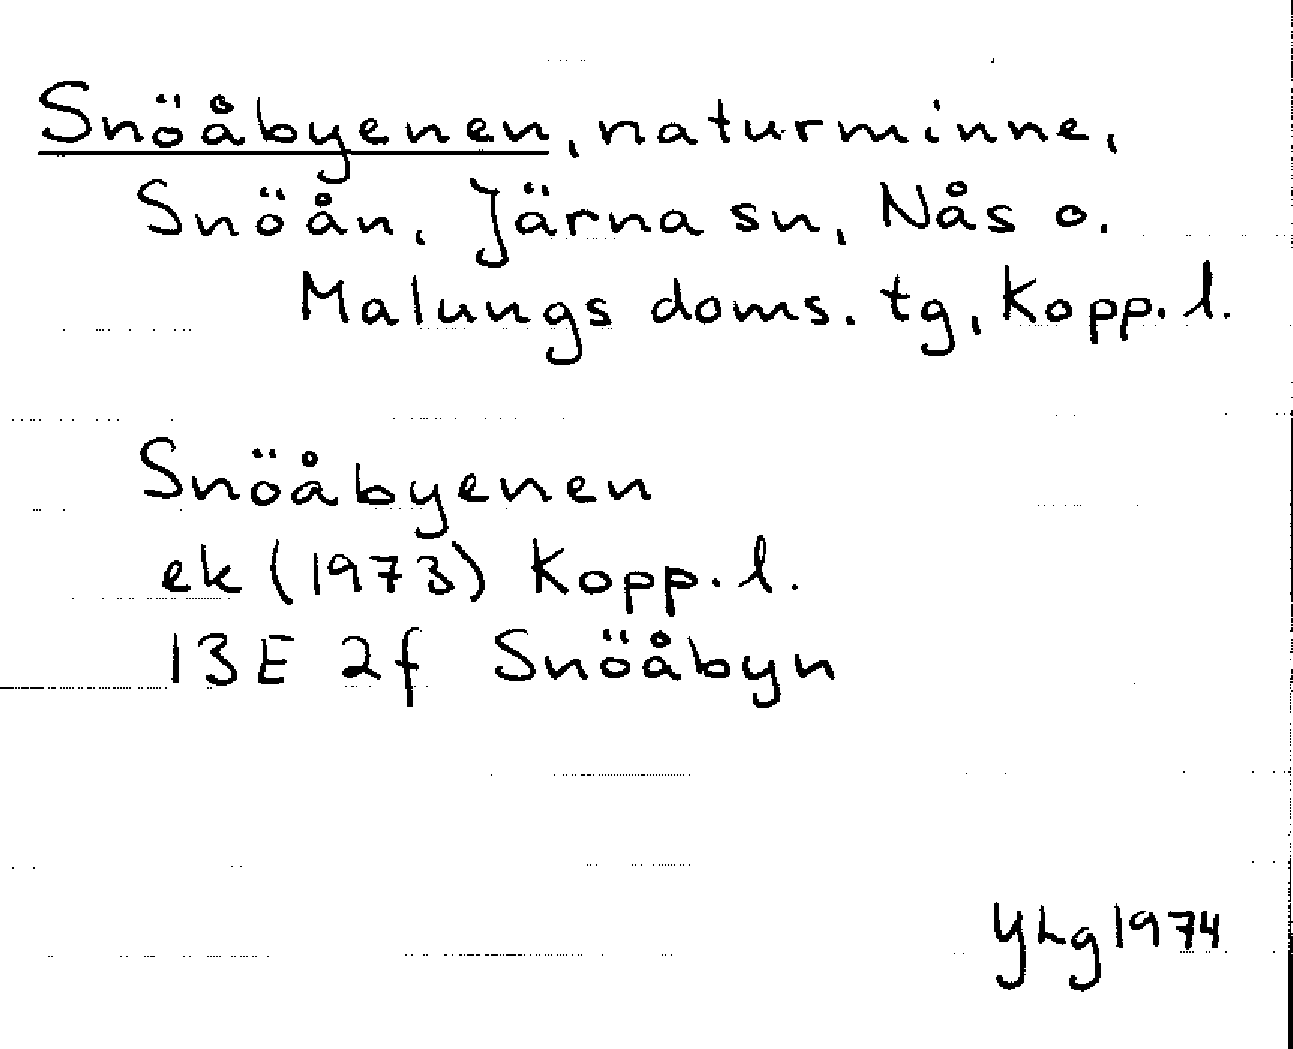 Snöåbyenen, naturminne,
Snöån, Järna sn, Nås o.
Malungs doms. tg, Kopp. l.
Snöåbyenen
ek (1973) Kopp. l.
13E 2f Snöåbyn
YLg 1974